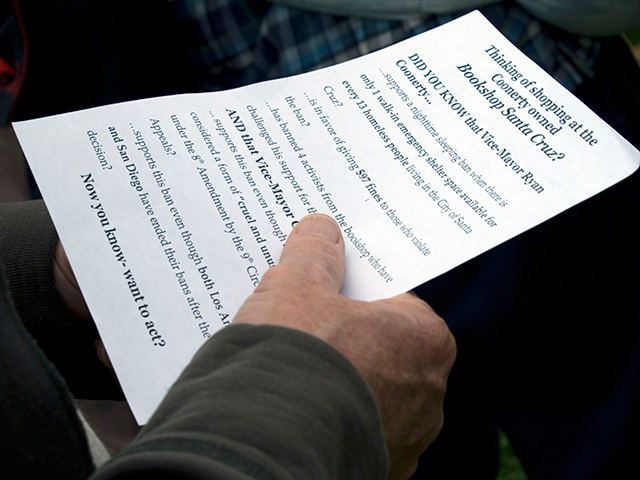 Thinking of shopping at the
Coonerty owned
Bookshop Santa Cruz?
DID YOU KNOW that Vice-Mayor Ryan
Coonerty...
...supports a nighttime sleeping ban when there is
only 1 walk-in emergency shelter space available for
every 13 homeless people living in the City of Santa
Cruz?
...is in favor of giving $97 fines to those who violate
the ban?
...has banned 4 activists from the bookshop who have
challenged his support for t
AND that Vice-Mayor C
...supports this ban even though
considered a form of "cruel and unu
under the 8th Amendment by the 9th Circ
Appeals?
...supports this ban even though both Los An
and San Diego have ended their bans after the
decision?
Now you know- want to act?